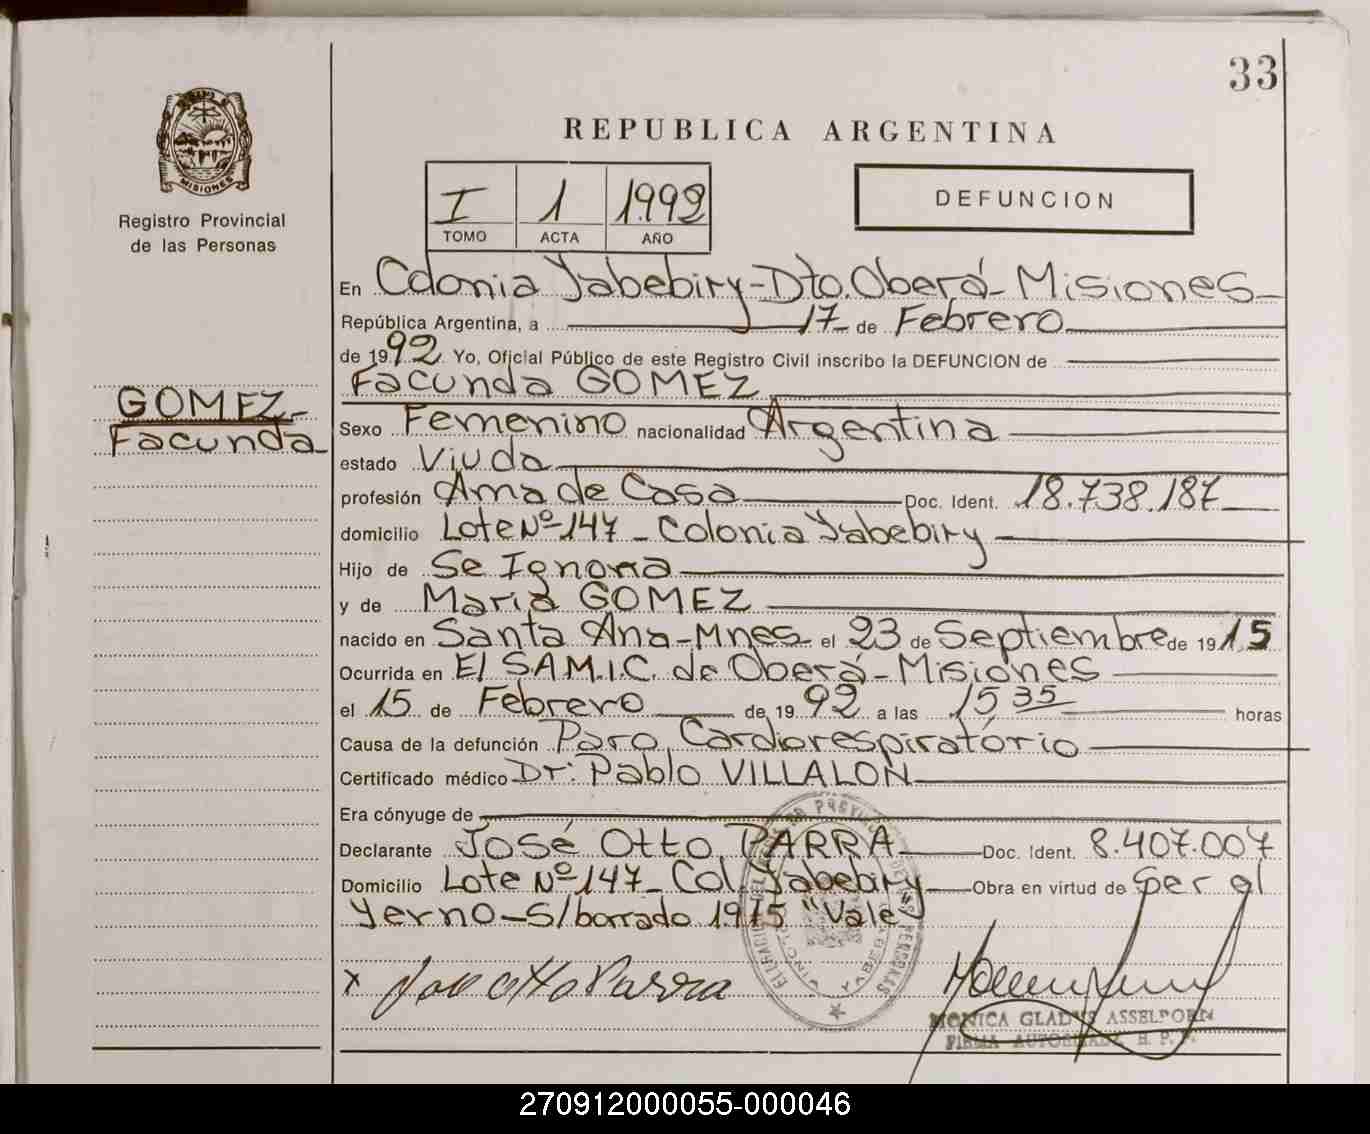 33
REPUBLICA ARGENTINA
MISIONES
Registro Provincial
de las Personas
I 1 1992
TOMO ACTA AÑO
DEFUNCION
En Colonia Yabebiry-Dto. Oberá-Misiones
República Argentina, a 17 de Febrero
de 1992. Yo, Oficial Público de este Registro Civil inscribo la DEFUNCION de
Facunda GOMEZ
GOMEZ-
Facunda
Sexo Femenino nacionalidad Argentina
estado Viuda
profesión Ama de Casa Doc. Ident. 18.738.187
domicilio Lote Nº 147 - Colonia Yabebiry
Hijo de Se Ignora
y de Maria GOMEZ
nacido en Santa Ana-Mnes- el 23 de Septiembre de 1915
Ocurrida en El S.A.M.I.C. de Oberá-Misiones
el 15 de Febrero de 1992 a las 15,35 horas
Causa de la defunción Paro Cardiorespiratório
Certificado médico Dr: Pablo VILLALON
Era cónyuge de
Declarante José Otto PARRA Doc. Ident. 8.407.007
Domicilio Lote Nº 147- Col. Yabebiry Obra en virtud de Ser el
Yerno-S/borrado 1915 "Vale"
x José Otto Parra
MONICA GLADYS ASSELBORN
FIRMA AUTORIZADA R. P. P.
270912000055-000046